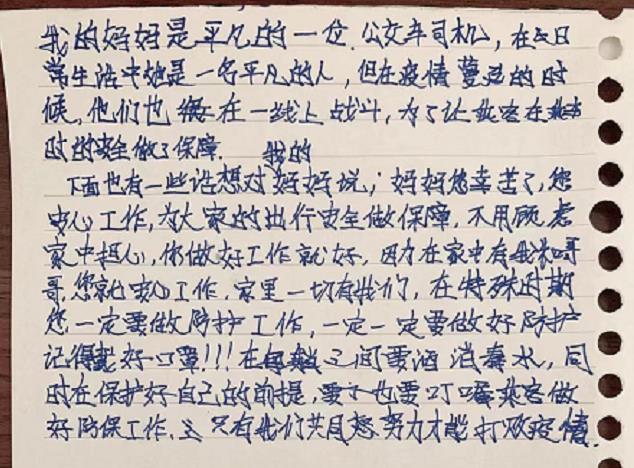 我的妈妈是平凡的一位公交车司机，在日
常生活中她是一名平凡的人，但在疫情蔓延的时
候，他们也在一线上战斗，为了让乘客在乘车
时的安全做了保障.
我的
下面也有一些话想对妈妈说，妈妈您幸苦了，您
安心工作，为大家的出行安全做保障，不用顾虑
家中担心，你做好工作就好，因为在家中有我和哥
哥，您就安心工作，家里一切有我们，在特殊时期
您一定要做防护工作，一定一定要做好防护
记得戴好口罩!!!在每趟之间要洒消毒水，同
时在保护好自己的前提，要也要叮嘱乘客做
好防保工作，只有我们共同努力才能打败疫情.